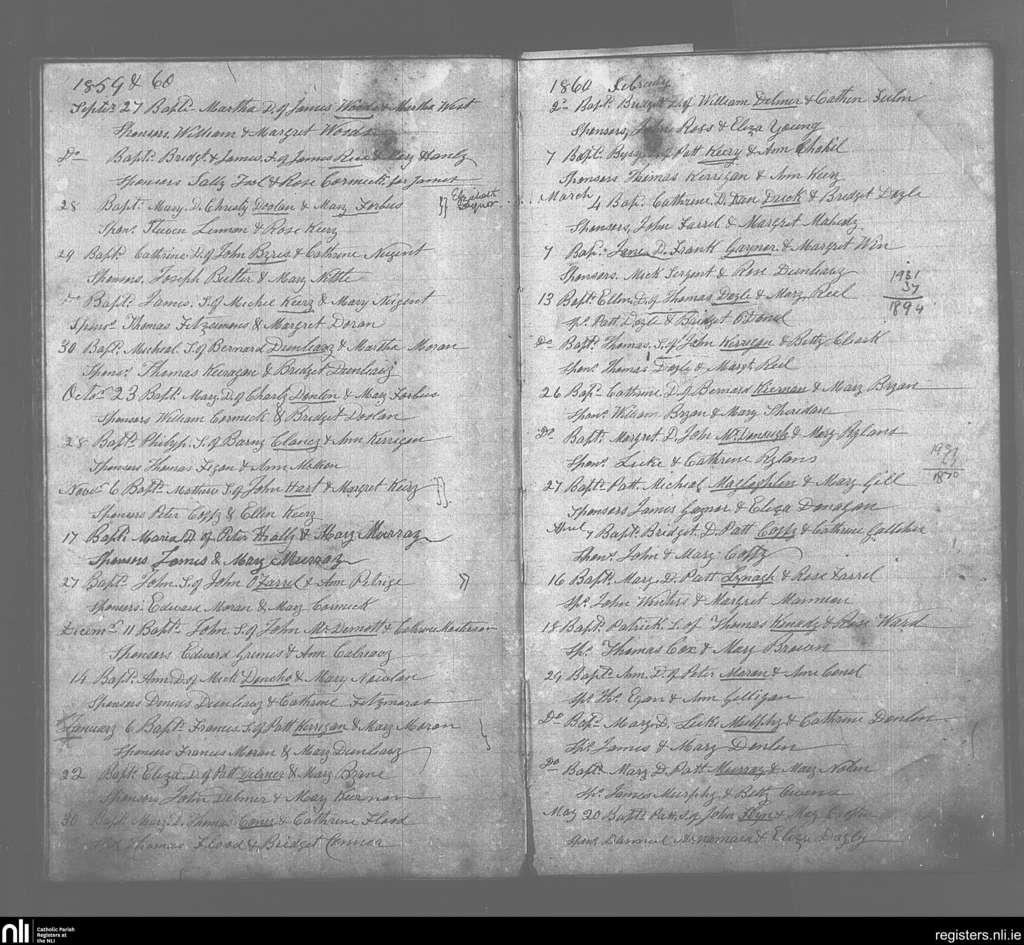 1859 & 60
Septer 27 Bapt. Martha D. of James Woods & Martha West
Sponsors, William & Margret Woods
Do Bapt. Bridgt. & James. of James Rice & Hanly
Sponsors Sally & Rose Cormick for James
28 Bapt. Mary D. Christy Doolan & Mary Forbus
Elizabeth
Spon. Lennon & Rose Kiery
29 Bapt. Cathrine D. of John Byres & Cathrine Nugent
Sponsors, Joseph Butler & Mary
Do Bapt. James. S. of Michel Kiery & Mary
Thomas Fitzsimons & Margret Doran
30 Bapt. Micheal S. of Bernard Dunleavy & Martha Moran
Sponsr. Thomas Keiragan & Bridget Dunleavy
Octor. 23 Bapt. Mary D. of Charly Donlon & Mary Forbus
Sponsors William Cormick & Bridget Doolan
28 Bapt. Philyp. S. of Barny Clancy & Ann Kerrigan
Sponsors Thomas Figan & Ann
Novr 6 Bapt. Mathew S. of John Hart & Margret Kiery
Sponsors Peter Coffy & Ellen Kiery
17 Bapt. Maria D of Peter Healy & Mary Murray
Sponsors James & Mary Murray
27 Bapt. John. S. of John O'Farrel & Ann Petrige
Sponsors. Edward Moran & Mary Cormick
Decemr 11 Bapt. John S. of John McDermott & Cathrine Masterson
Sponsors Edward Grimes & Ann
14 Bapt. Ann D. of Mick Doncho & Mary Nowlan
Sponsors Dennis Dunleavy & Cathrine Fitzmoras
January 6 Bapt. Francis S. of Patt Kerrigan & Mary Moran
Sponsors Francis Moran & Mary Dunleavy
22 Bapt. Eliza. D. of Patt Delmer & Mary Byrne
Sponsors John Delmer & Mary Kiernan
30 Bapt. Mary D. Thomas & Cathrine Flood
Thomas Flood & Bridget Connor
1860 February
2 Bapt. Bridget D. of William Delmer & Cathrin
Sponsors, John Ross & Eliza Young
7 Bapt. of Patt Kiery & Ann
Sponsors Thomas Kerrigan & Ann Kiery
March 4 Bap. Cathrine D. Dan & Bridget Doyle
Sponsors, John Farrel & Margret
7 Bap. James D. Frank Gaynor. & Margret Win
Sponsors. Mick Sergent & Rose Dunleavy
1931
37
1894
13 Bapt. Ellen D. of Thomas Doyle & Mary Reil
Sp. Patt Doyle & Bridget O'Donel
Do Bapt. Thomas. S. of John Kerregan & Betty Cluck
Spon. Thomas Doyle & Margt. Reil
26 Bap. Cathrine D. of Bernard Kiernan & Mary Bryan
Spon. William Bryan & Mary Sheridan
Do Bapt. Margret. D. John McDonough & Mary Rylans
Spon. Luke & Cathrine Rylans
27 Bapt. Patt. Micheal & Mary Gill
1870
Sponsors James Gaynor & Eliza Donagan
April 7 Bapt. Bridget. D. Patt Coffy & Cathrine
Spon. John & Mary Coffy
16 Bapt. Mary. D. Patt Lynagh & Rose Farrel
Sp. John Winters & Margret Mannion
18 Bapt. Patrick S. of Thomas Kenedy & Rose Ward
Sp. Thomas Cox & Mary Brown
24 Bapt. Ann. D. of Peter Moran & Ann Conel
Sp. Ths. Egan & Ann Gilligan
Do Bapt. Mary D. Luke Murphy & Cathrine Donlon
Sp. James & Mary Donlon
Do Bapt. Mary D. Patt Murray & Mary Nolan
Sp. James Murphy & Betty
May 20 Bapt. Patt. S. of John Flyn & Mary
Spon. McNamara & Eliza
nli
Catholic Parish
Registers at
the NLI
registers.nli.ie